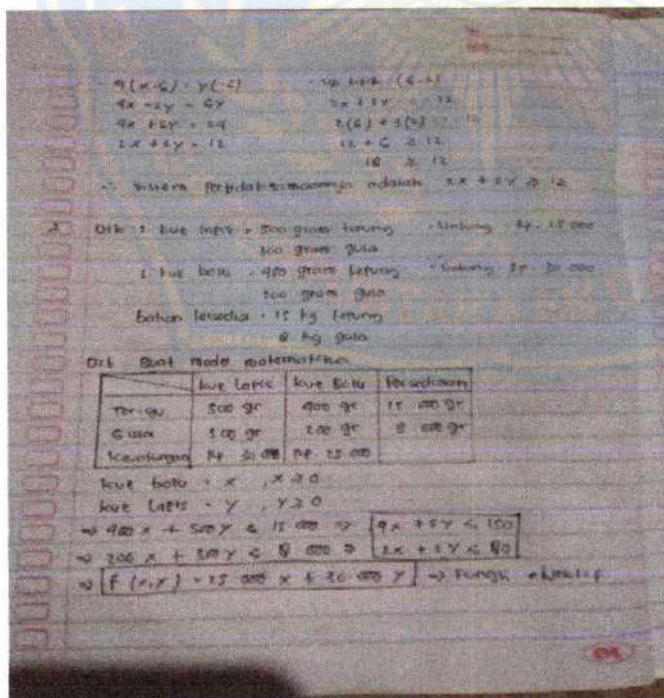 4(x-6) = y(-6)
4x - 24 = 6y
4x + 6y = 24
2x + 3y = 12
(6,2)
2x + 3y = 12
2(6) + 3(2) = 12
12 + 6 ≥ 12
18 ≥ 12
∴ sistem pertidaksamaannya adalah 2x + 3y ≥ 12
2. Dik: 1 kue lapis = 500 gram tepung
300 gram gula
1 kue bolu = 400 gram tepung
200 gram gula
bahan tersedia = 15 kg tepung
8 kg gula
Dit: Buat model matematika
kue lapis kue bolu Persediaan
Terigu 500 gr 400 gr 15 000 gr
Gula 300 gr 200 gr 8 000 gr
Keuntungan Rp. 30 000 Rp. 25 000
kue bolu = x , x ≥ 0
kue lapis = y , y ≥ 0
⇒ 400 x + 500 y ≤ 15 000 ⇒ 4x + 5y ≤ 150
⇒ 200 x + 300 y ≤ 8 000 ⇒ 2x + 3y ≤ 80
⇒ F (x,y) = 25 000 x + 30 000 y → Fungsi objektif